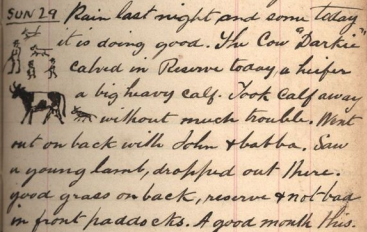 SUN 29 Rain last night and some today
it is doing good. The Cow "Darkie"
calved in Reserve today, a heifer
a big heavy calf. Took calf away
without much trouble. Went
out on back with John & babba. Saw
a young lamb, dropped out there.
good grass on back, reserve & not bad
in front paddocks. A good month this.